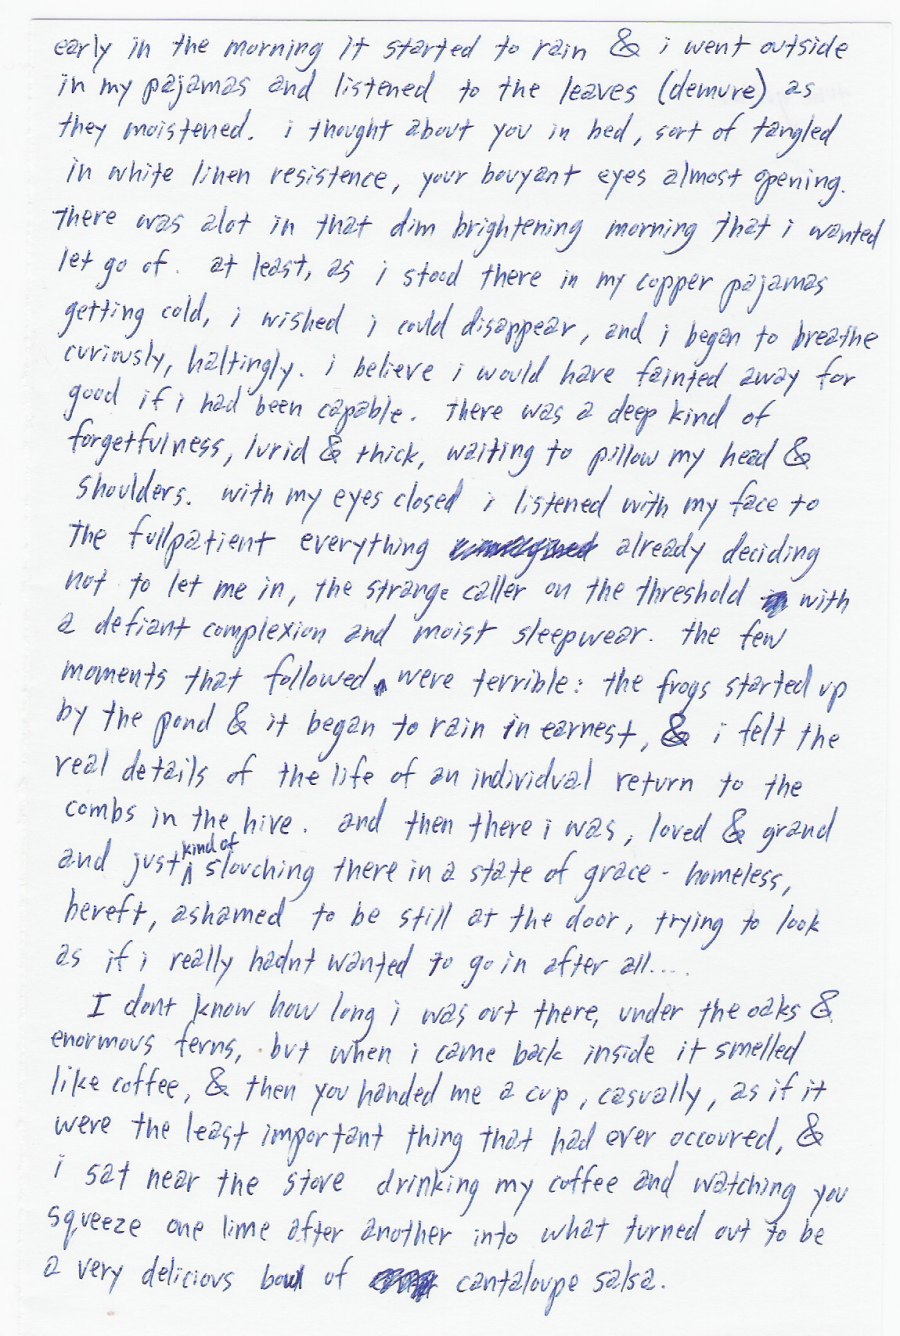 early in the morning it started to rain & i went outside
in my pajamas and listened to the leaves (demure) as
they moistened. i thought about you in bed, sort of tangled
in white linen resistence, your bouyant eyes almost opening.
there was alot in that dim brightening morning that i wanted
let go of. at least, as i stood there in my copper pajamas
getting cold, i wished i could disappear, and i began to breathe
curiously, haltingly. i believe i would have fainted away for
good if i had been capable. there was a deep kind of
forgetfulness, lurid & thick, waiting to pillow my head &
shoulders. with my eyes closed i listened with my face to
the fullpatient everything already deciding
not to let me in, the strange caller on the threshold with
a defiant complexion and moist sleepwear. the few
moments that followed were terrible: the frogs started up
by the pond & it began to rain in earnest, & i felt the
real details of the life of an individual return to the
combs in the hive. and then there i was, loved & grand
and just kind of slouching there in a state of grace - homeless,
bereft, ashamed to be still at the door, trying to look
as if i really hadnt wanted to go in after all....
I dont know how long i was out there, under the oaks &
enormous ferns, but when i came back inside it smelled
like coffee, & then you handed me a cup, casually, as if it
were the least important thing that had ever occoured, &
i sat near the stove drinking my coffee and watching you
squeeze one lime after another into what turned out to be
a very delicious bowl of cantaloupe salsa.